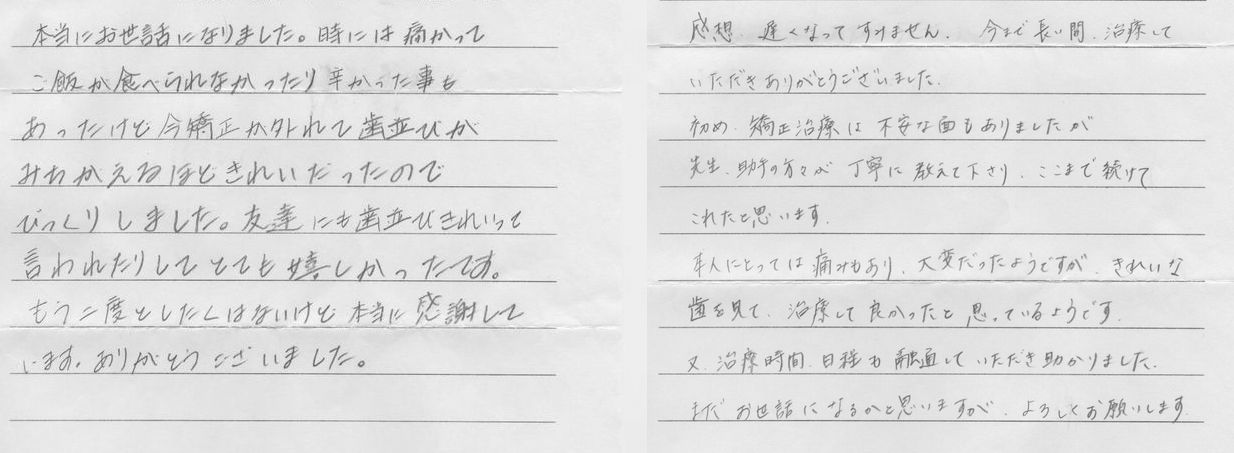 本当にお世話になりました。時には痛かって
ご飯が食べられなかったり辛かった事も
あったけど今矯正が外れて歯並びが
みちがえるほどきれいだったので
びっくりしました。友達にも歯並びきれいって
言われたりしてとても嬉しかったです。
もう二度としたくはないけど本当に感謝して
います。ありがとうございました。
感想、遅くなってすみません。 今まで長い間、治療して
いただきありがとうございました。
初め、矯正治療は不安な面もありましたが
先生、助手の方々が丁寧に教えて下さり、ここまで続けて
これたと思います。
本人にとっては痛みもあり、大変だったようですが、きれいな
歯を見て、治療して良かったと思っているようです。
又、治療時間、日程も融通していただき助かりました。
まだお世話になるかと思いますが、よろしくお願いします。